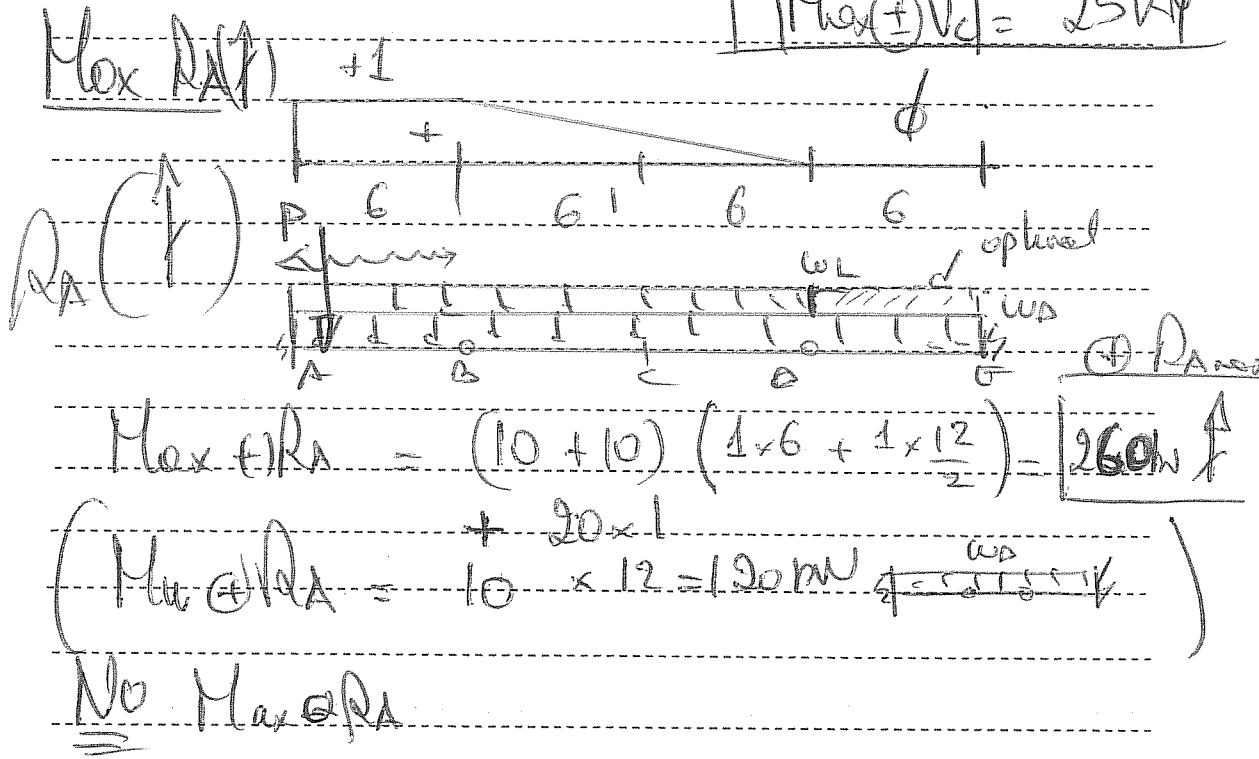 |Max(±)Vc| = 25kN
Max RA(↑) +1
+ ϕ
6 6 6 6
RA(↑) P WL optional
WD
A B C D E
⊕ RA max
Max (+)RA = (10 + 10) (1×6 + 1×12/2) = 260kN ↑
+ 20×1
(Min ⊕ RA = 10 × 12 = 120kN WD)
No Max ⊖ RA